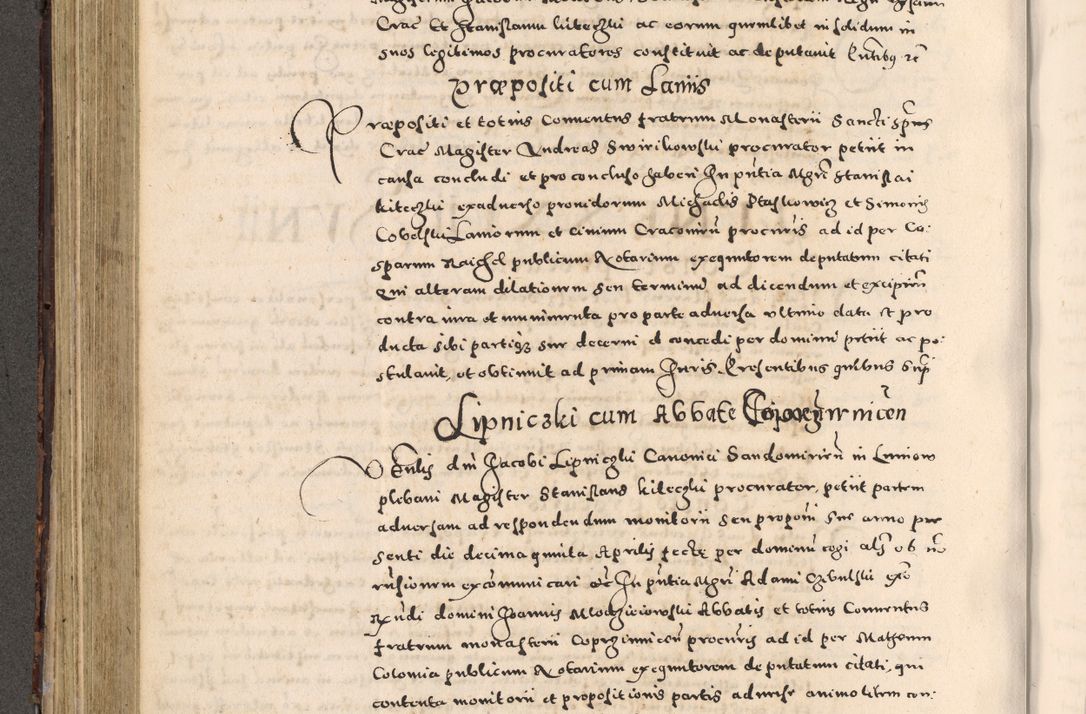 Crac Et Stanislaum kiteczki ac eorum quemlibet insolidum in
suos legitimos procuratores constituit ac deputauit
Præpositi cum Laniis
Præpositi et totius Conuentus fratrum Monasterii Sancti Spūs
Crac Magister Andreas Swirikowski procurator petiit in
causa concludi et pro concluso haberi In pn̄tia Mgr̄i Stanislai
kiteczki exaduerso prouidorum Michaelis Ptaskowicz et Simonis
Laniorum et ciuium Cracouien̄ procuris ad id per Ca-
sparum Raichel publicum Notarium exequutorem deputatum citati
Qui alteram dilationem seu terminū ad dicendum et excipien̄
contra iura et munimenta pro parte aduersa vltimo data et pro
ducta sibi partiq3 sue decerni et concedi per dominū petiit ac po-
stulauit, et obtinuit ad primam Iuris. Presentibus quibus sup̄
Lipniczki cum Abbate
Vēnlis dn̄i Jacobi Lipniczki Canonici Sandomirien̄ in
plebani Magister Stanislaus kiteczki procurator, petiit partem
aduersam ad respondendum monitorii seu propōni sue anno pre
senti die decima quinta Aprilis fecte per dominū cogi als̄ ob
excōmunicari etc̄ In pn̄tia Mgr̄i Adami
domini Joannis Mlodzieiowski Abbatis et totius Conuentus
fratrum monasterii Coprziunicen̄ procuris ad id per Matheum
Colonia publicum Notarium exequutorem deputatum citati, qui
contenta monitorii et propositionis partis aduerse animo litem con-